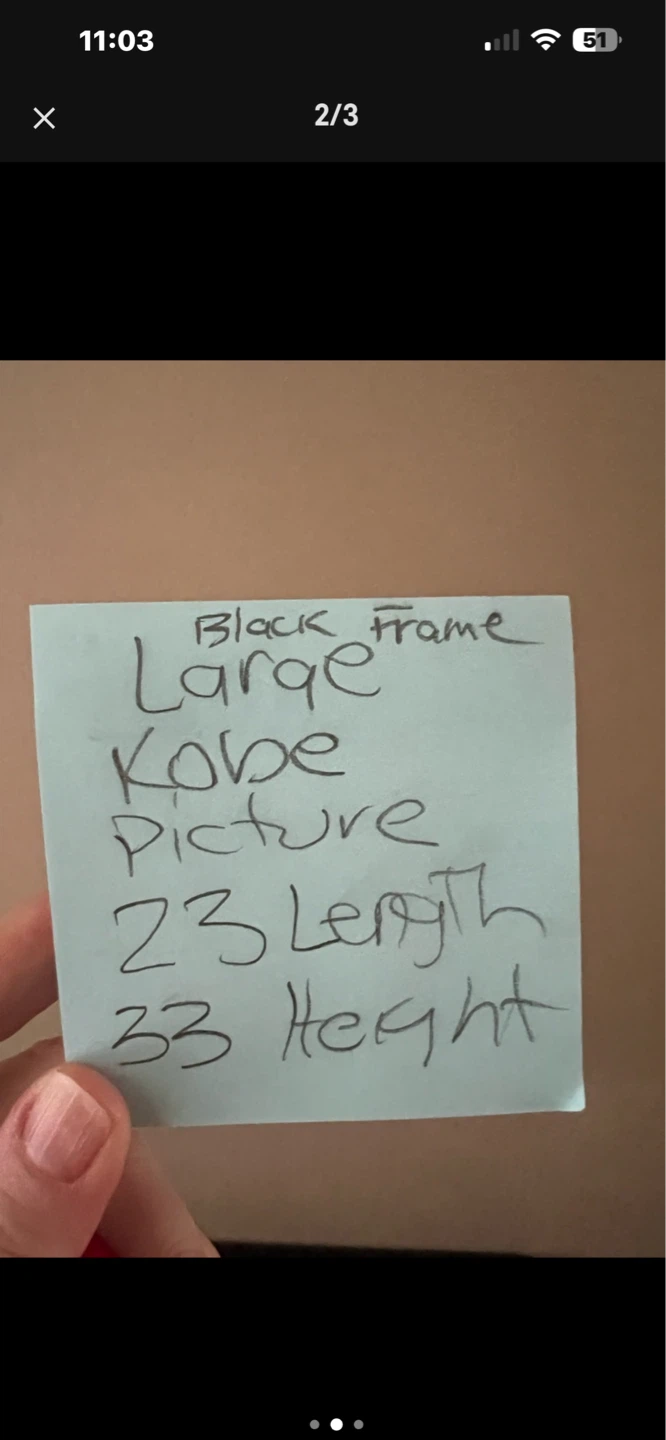 11:03
51
2/3
Black Frame
Large
Kobe
Picture
23 Length
33 Heighht